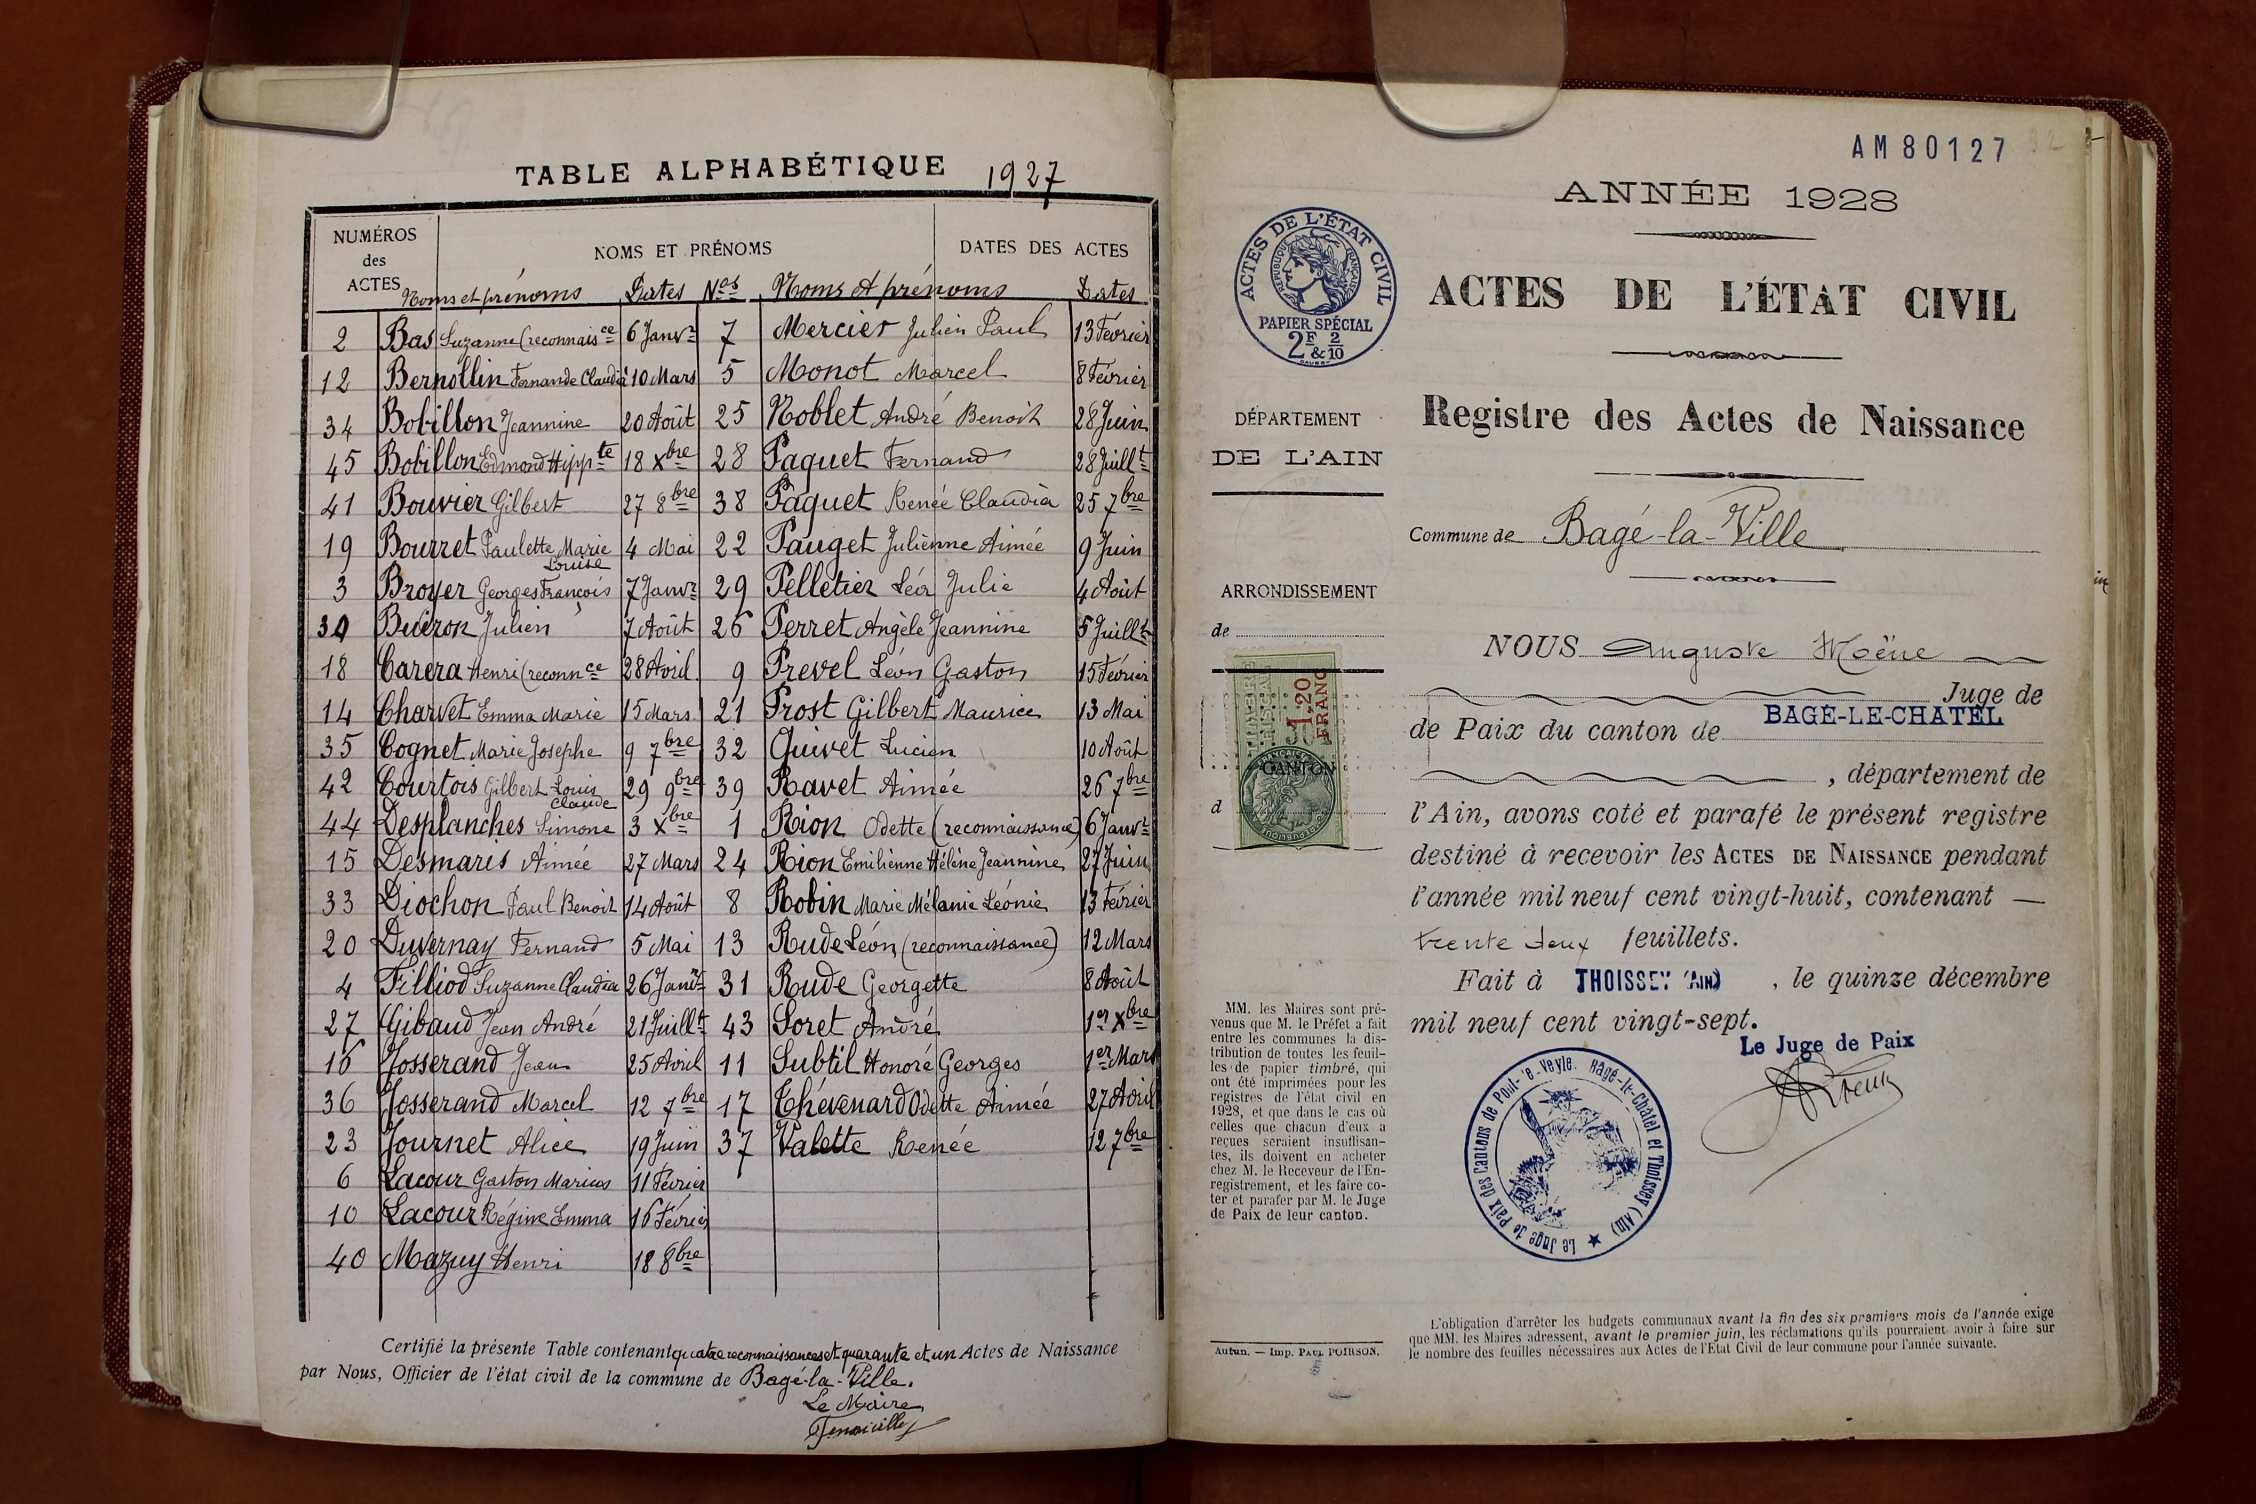 TABLE ALPHABÉTIQUE 1927
NUMÉROS des ACTES
NOMS ET PRÉNOMS
DATES DES ACTES
Noms et prénoms Dates Nos Noms et prénoms Dates
2 Bas Suzanne (reconnaisce 6 Janvr 7 Mercier Julien Paul 13 Février
12 Bernollin Fernande Claudia 10 Mars 5 Monot Marcel 8 Février
34 Bobillon Jeannine 20 Août 25 Noblet André Benoit 28 Juin
45 Bobillon Edmond Hippte 18 Xbre 28 Paquet Fernand 28 Juillt
41 Bouvier Gilbert 27 8bre 38 Paquet Renée Claudia 25 7bre
19 Bourret Paulette Marie Louise 4 Mai 22 Pauget Julienne Aimée 9 Juin
3 Broyer Georges François 7 Janvr 29 Pelletier Léa Julie 4 Août
30 Buiron Julien 7 Août 26 Perret Angèle Jeannine 5 Juillt
18 Carera Henri (reconnce 28 Avril 9 Prevel Léon Gaston 15 Février
14 Charvet Emma Marie 15 Mars 21 Prost Gilbert Maurice 13 Mai
35 Cognet Marie Josephe 9 7bre 32 Quivet Lucien 10 Août
42 Courtois Gilbert Louis Claude 29 9bre 39 Ravet Aimée 26 7bre
44 Desplanches Simone 3 Xbre 1 Rion Odette (reconnaissance) 6 Janvr
15 Desmaris Aimée 27 Mars 24 Rion Emilienne Hélène Jeannine 27 Juin
33 Diochon Paul Benoit 14 Août 8 Robin Marie Mélanie Léonie 13 Février
20 Duvernay Fernand 5 Mai 13 Rude Léon (reconnaissance) 12 Mars
4 Filliod Suzanne Claudia 26 Janvr 31 Rude Georgette 8 Août
27 Gibaud Jean André 21 Juillt 43 Soret André 1er Xbre
16 Josserand Jean 25 Avril 11 Subtil Honoré Georges 1er Mars
36 Josserand Marcel 12 7bre 17 Thévenard Odette Aimée 27 Avril
23 Journet Alice 19 Juin 37 Valette Renée 12 7bre
6 Lacour Gaston Marius 11 Février
10 Lacour Régine Emma 16 Février
40 Mazuy Henri 18 8bre
Certifié la présente Table contenant quatre reconnaissances et quarante et un Actes de Naissance
par Nous, Officier de l'état civil de la commune de Bagé-la-Ville.
Le Maire
AM 80127
ANNÉE 1928
ACTES DE L'ÉTAT CIVIL
RÉPUBLIQUE FRANÇAISE
PAPIER SPÉCIAL
2F & 2/10
ACTES DE L'ÉTAT CIVIL
Registre des Actes de Naissance
DÉPARTEMENT
DE L'AIN
Commune de Bagé-la-Ville
ARRONDISSEMENT
de
NOUS Auguste Moëne
Juge de
de Paix du canton de BAGÉ-LE-CHATEL
TIMBRE FISCAL
1,20 FRANC
CANTON
d
, département de
l'Ain, avons coté et parafé le présent registre
destiné à recevoir les ACTES DE NAISSANCE pendant
l'année mil neuf cent vingt-huit, contenant —
trente deux feuillets.
Fait à THOISSEY (AIN), le quinze décembre
mil neuf cent vingt-sept.
Le Juge de Paix
Le Juge de Paix des Cantons de Pont-de-Veyle. Bagé-le-Châtel et Thoissey (Ain)
MM. les Maires sont pré-
venus que M. le Préfet a fait
entre les communes la dis-
tribution de toutes les feuil-
les de papier timbré, qui
ont été imprimées pour les
registres de l'état civil en
1928, et que dans le cas où
celles que chacun d'eux a
reçues seraient insuffisan-
tes, ils doivent en acheter
chez M. le Receveur de l'En-
registrement, et les faire co-
ter et parafer par M. le Juge
de Paix de leur canton.
Autun. — Imp. PAUL POIRSON.
L'obligation d'arrêter les budgets communaux avant la fin des six premiers mois de l'année exige
que MM. les Maires adressent, avant le premier juin, les réclamations qu'ils pourraient avoir à faire sur
le nombre des feuilles nécessaires aux Actes de l'Etat Civil de leur commune pour l'année suivante.